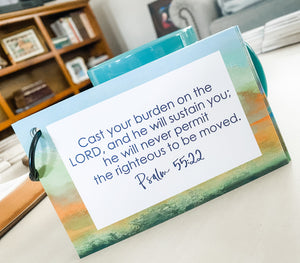 Cast your burden on the
LORD, and he will sustain you;
he will never permit
the righteous to be moved.
Psalm 55:22